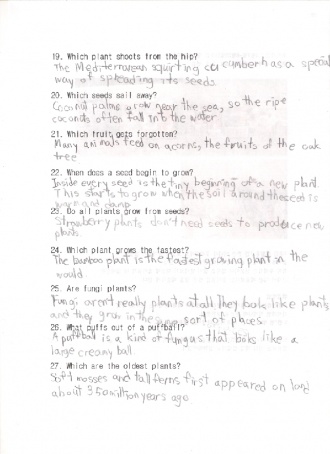 19. Which plant shoots from the hip?
The Mediterranean squirting cucumber has a special
way of spreading its seeds
20. Which seeds sail away?
Coconut palms grow near the sea, so the ripe
coconuts often fall into the water
21. Which fruit gets forgotten?
Many animals feed on acorns, the fruits of the oak
tree
22. When does a seed begin to grow?
Inside every seed is the tiny beginning of a new plant
This starts to grow when the soil around the seed is
warm and damp
23. Do all plants grow from seeds?
Strawberry plants don't need seeds to produce new
plants
24. Which plant grows the fastest?
The bamboo plant is the fastest growing plant in the
would
25. Are fungi plants?
Fungi aren't really plants at all They look like plants
and they grow in the same sort of places
26. What puffs out of a puffball?
A puffball is a kind of fungas that looks like a
large creamy ball
27. Which are the oldest plants?
Soft mosses and tall ferns first appeared on land
about 350 million years ago